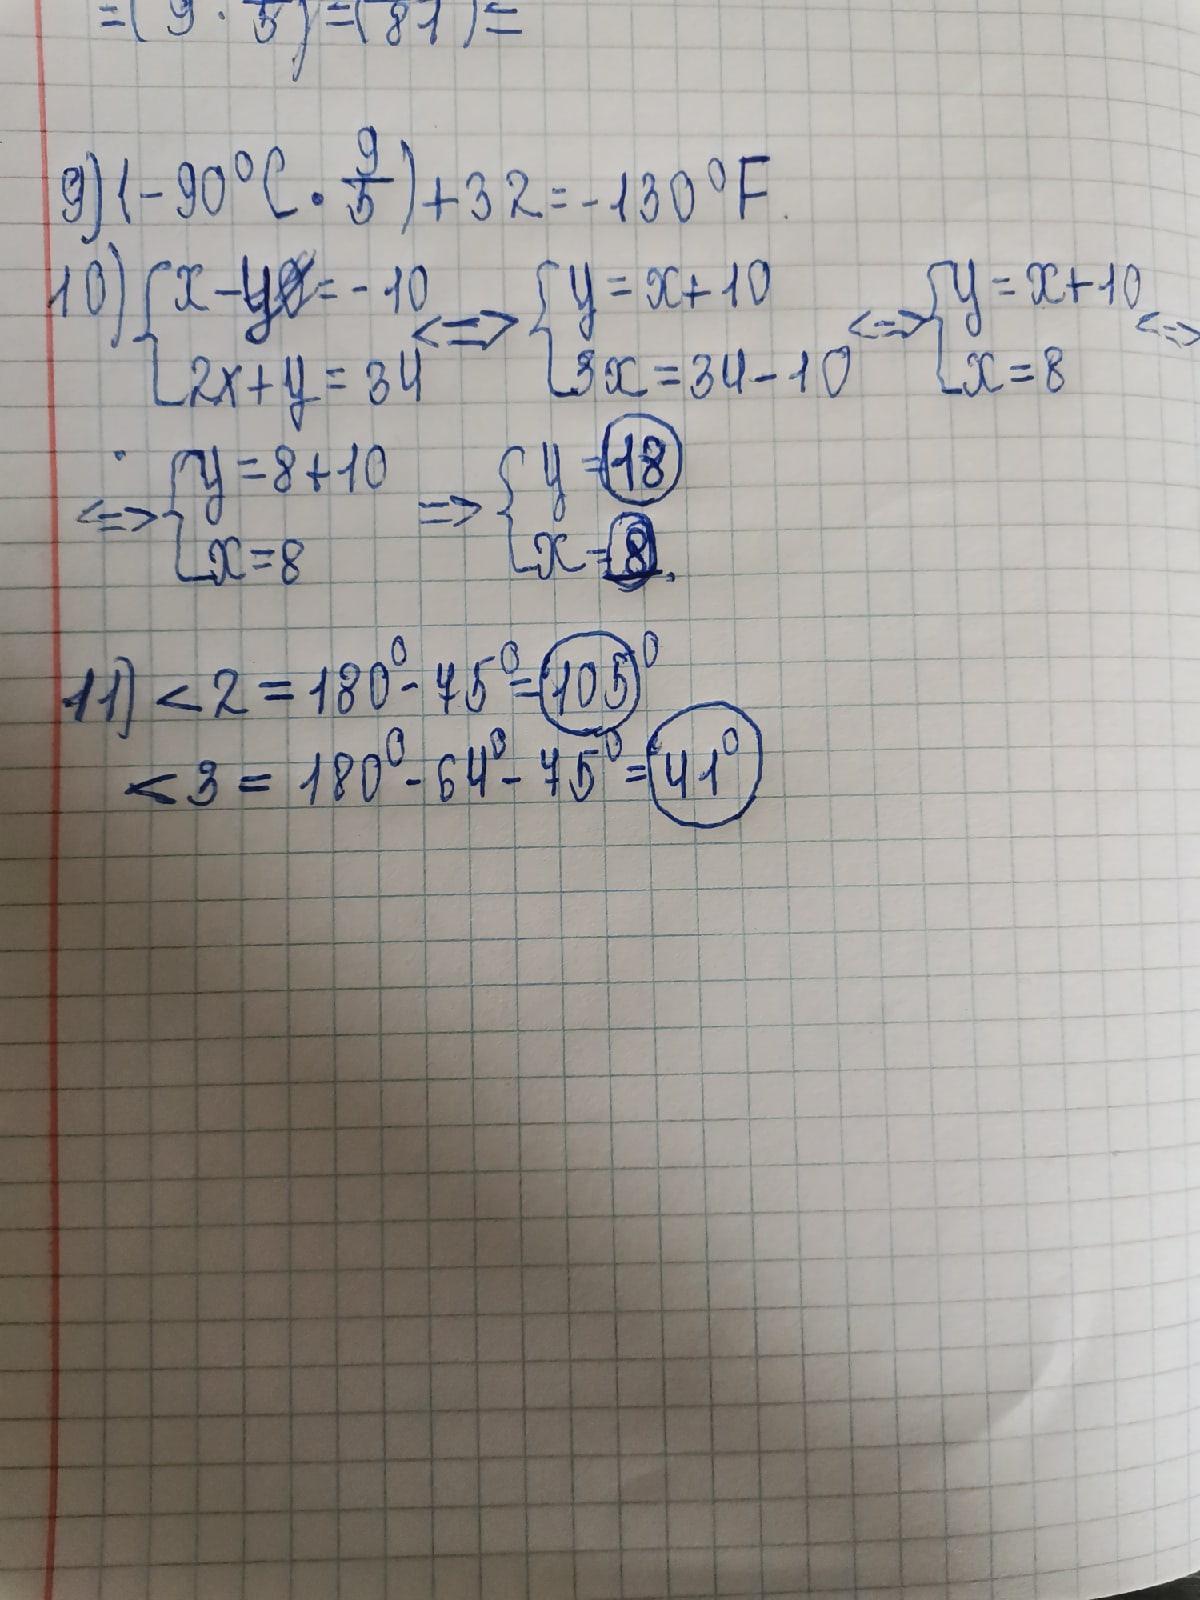 =(9 · /5)=(/81)=
9) (-90°C · 9/5) + 32 = -130°F.
10) { x - y = -10 <=> { y = x + 10 <=> { y = x + 10 <=>
2x + y = 34 3x = 34 - 10 x = 8
<=> { y = 8 + 10 => { y = 18
x = 8 x = 8.
11) < 2 = 180° - 75° = 105°
< 3 = 180° - 64° - 75° = 41°